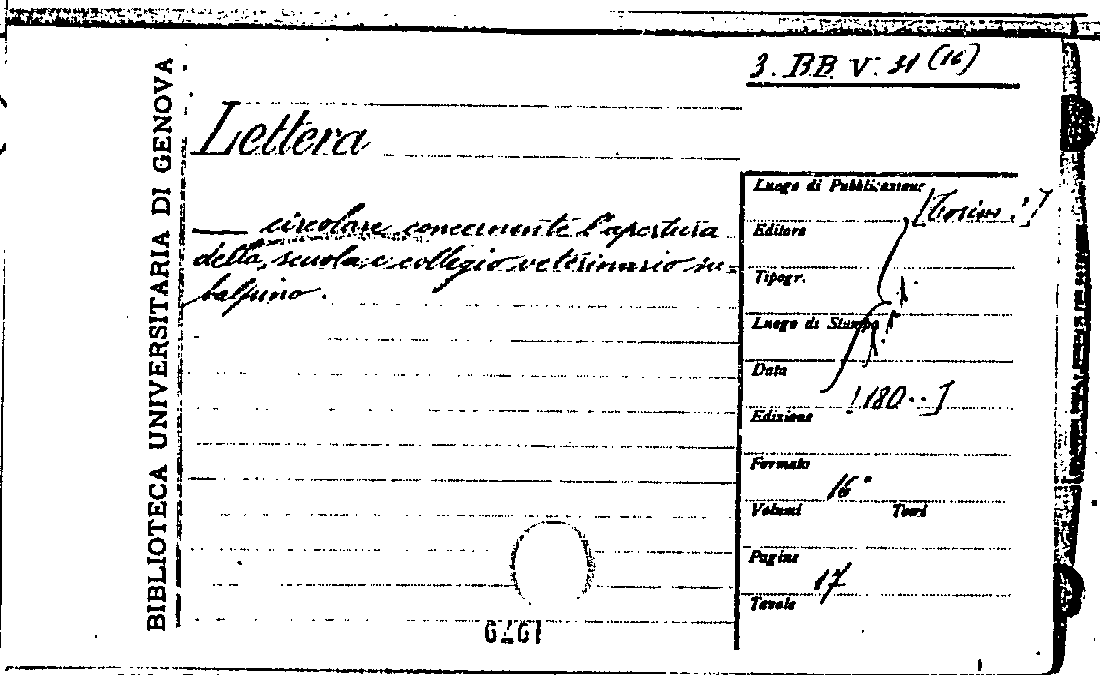 3. B.B. V. 31 (16)
BIBLIOTECA UNIVERSITARIA DI GENOVA
Lettera
— circolare concernente l'apertura
della scuola e collegio veterinario su=
balpino.
Luogo di Pubblicazione
[Torino?]
Editore
Tipogr.
Luogo di Stampa
Data
180..]
Edizione
Formato
16°
Volumi Tomi
Pagine
17
Tavole